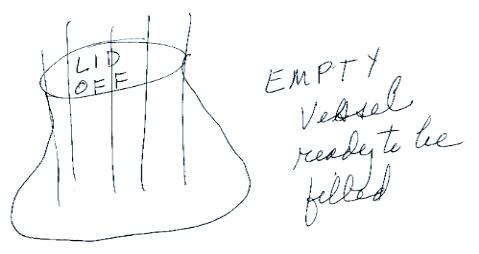 LID
OFF
EMPTY
Vessel
ready to be
filled